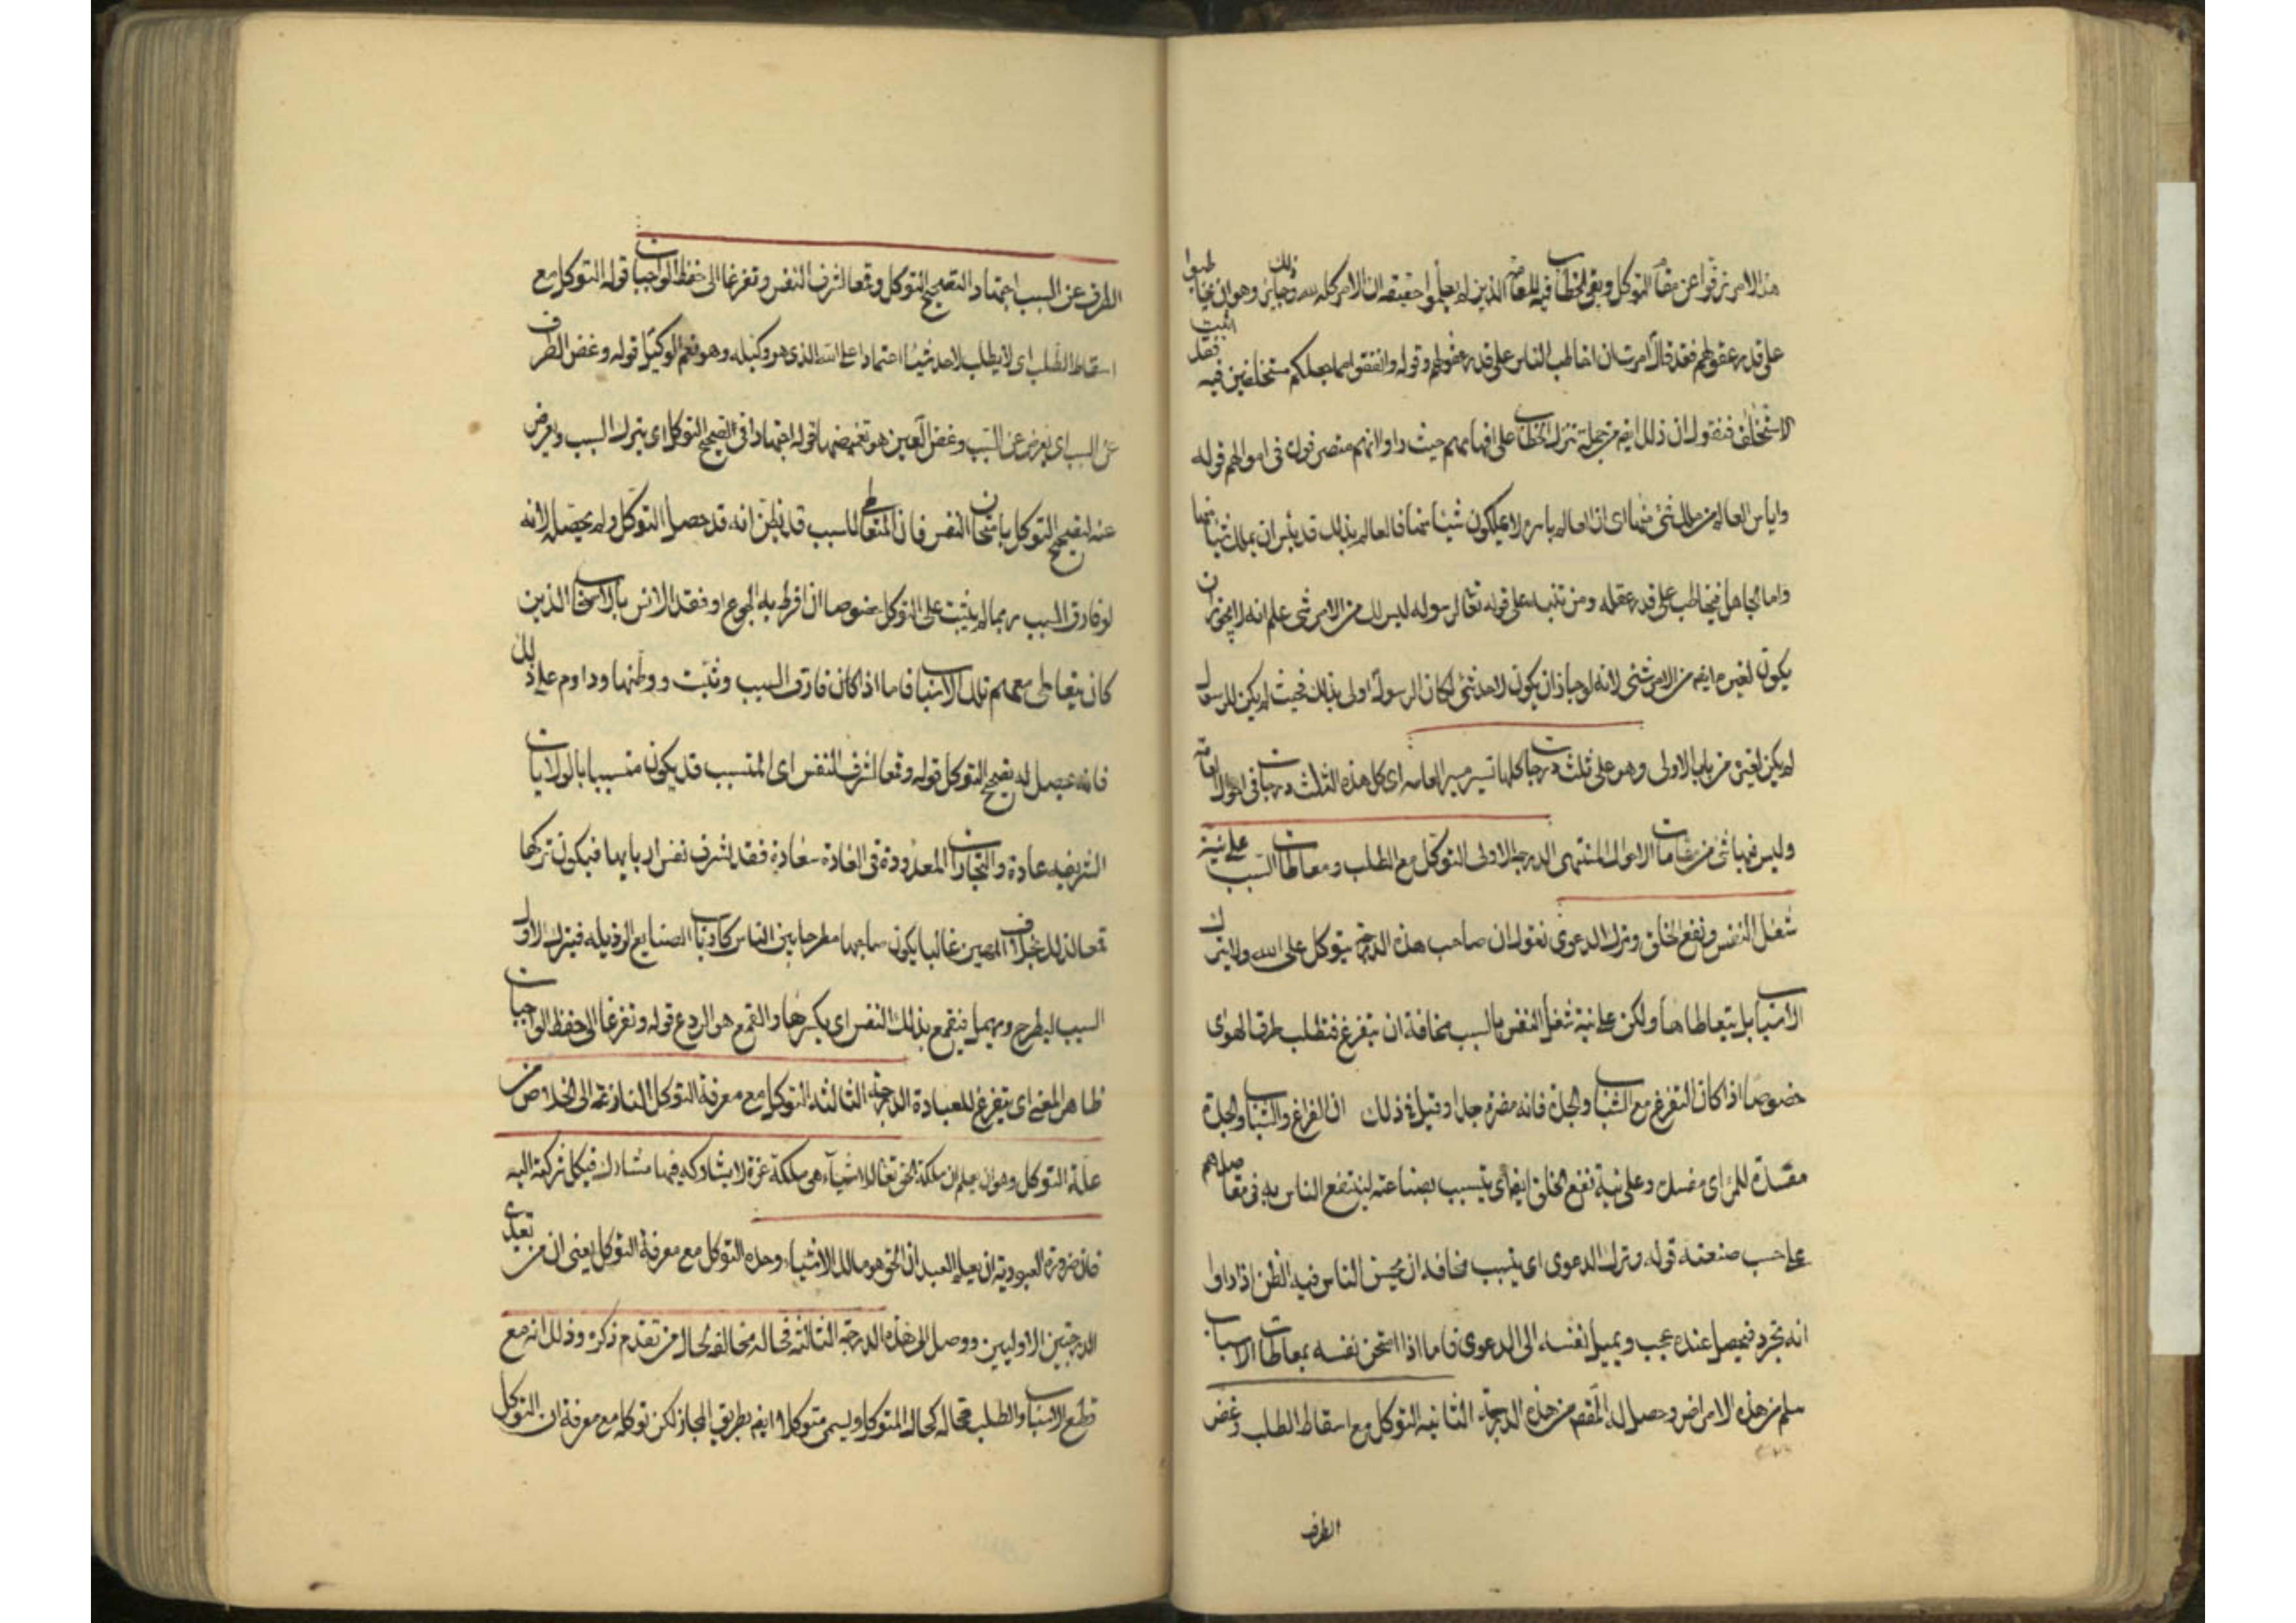 هذا الامر ترقوا عن مقام التوكل وبقى الخطاب فيه للعامة الذين لم يعلموا حقيقة ان الامر كله لله وذلك جايز وهو ان يخاطبوا
على قدر عقولهم فقد قال امرت ان اخاطب الناس على قدر عقولهم وقوله وانفقوا مما جعلكم مستخلفين فيه فقد اثبت
الاستخلاف فنقول ان ذلك ايضا من جملة تنزل الخطاب على افهامهم حيث راوا انهم متصرفون في اموالهم قوله
واياس العالم من ملك شئ منها اى ان العالم باسره لا يملكون شيئا منها فالعالم بذلك قد يئس ان يملك شيئا منها
واما الجاهل فيخاطب على قدر عقله ومن تنبه على قوله تعالى لرسوله ليس لك من الامر شئ علم انه لا يجوز ان
يكون لغيره ايضا من الامر شئ لانه لو جاز ان يكون لاحد شئ لكان الرسول اولى بذلك فحيث لم يكن للرسول
لم يكن لغيره من باب الاولى وهو على ثلث درجات كلها تسير مسير العامه اى كل هذه الثلث درجات في احوال العامة
وليس فيها شئ من مقامات الاحوال المنتهى الدرجة الاولى التوكل مع الطلب ومعاطات السبب على نية
شغل النفس ونفع الخلق وترك الدعوى نقول ان صاحب هذه الدرجة يتوكل على الله ولا يترك
الاسباب بل يتعاطاها ولكن على نية شغل النفس بالسبب مخافة ان يتفرغ فتطلب طرق الهوى
خصوصا اذا كان التفرغ مع الشباب والجدة فانه مضر جدا وقيل فى ذلك ان الفراغ والشباب والجدة
مفسدة للمرء اى مفسدة وعلى نية نفع الخلق ايضا اى يتسبب بصناعته لينتفع الناس به في مقاصدهم
على حسب صنعته قوله وترك الدعوى اى يتسبب مخافة ان يحسن الناس فيه الظن اذا راوا
انه تجرد فيحصل عنده عجب ويميل نفسه الى الدعوى فاما اذا امتحن نفسه بمعاطات الاسباب
سلم من هذه الامراض وحصل له المقصود من هذه الدرجة الثانيه التوكل مع اسقاط الطلب وغض
الطرف
الطرف عن السبب اجتهادا لتصحيح التوكل وقمعا لشرف النفس وتفرغا الى حفظ الواجبات قوله التوكل مع
اسقاط الطلب اى لا يطلب لاحد شيئا اعتمادا على الله الذى هو وكيله وهو نعم الوكيل قوله وغض الطرف
عن السبب اى يعرض عن السبب وغض العين هو تغميضها قوله اجتهادا في تصحيح التوكل اى يترك السبب ويعرض
عنه لتصحيح التوكل بامتحان النفس فان المتعاطى للسبب قد يظن انه قد حصل التوكل ولم يحصل لانه
لو فارق السبب ربما لم يثبت على التوكل خصوصا ان افرط به الجوع او فقد الانس بالاشخاص الذين
كان يتعاطى معهم تلك الاسباب فاما اذا كان فارق السبب وثبت ووطنها وداوم على ذلك
فانه حصل له تصحيح التوكل قوله وقمعا لشرف النفس اى المتسبب قد يكون متسببا بالولايات
الشريفه عادة والتجارات المعدودة في العادة سعادة فقد تشرف نفس اربابها فيكون تركها
قمعا لذلك بخلاف المهين غالبا يكون صاحبها مطرحا بين الناس كارباب الصنايع الرذيله فيترك الاول
السبب ليطرح ويهمل فيقمع بذلك النفس اى يكسرها والقمع هو الردع قوله وتفرغا الى حفظ الواجبات
ظاهر المعنى اى يتفرغ للعبادة الدرجة الثالثة التوكل مع معرفة التوكل النازعة الى الخلاص من
علة التوكل وهو ان يعلم ان ملكة الحق تعالى للاشياء هى ملكة عزة لا يشاركه فيها مشارك فيكل شركته اليه
فان ضرورة العبودية ان يعلم العبد ان الحق هو مالك الاشياء وحده التوكل مع معرفة التوكل يعنى ان من تعدى
الدرجتين الاوليين ووصل الى هذه الدرجة الثالثة فحاله مخالفة لحال من تقدم ذكره وذلك انه مع
قطع الاسباب والطلب فحاله كحال المتوكل ويسمى متوكلا ايضا بطريق المجاز لكن توكله مع معرفة ان التوكل